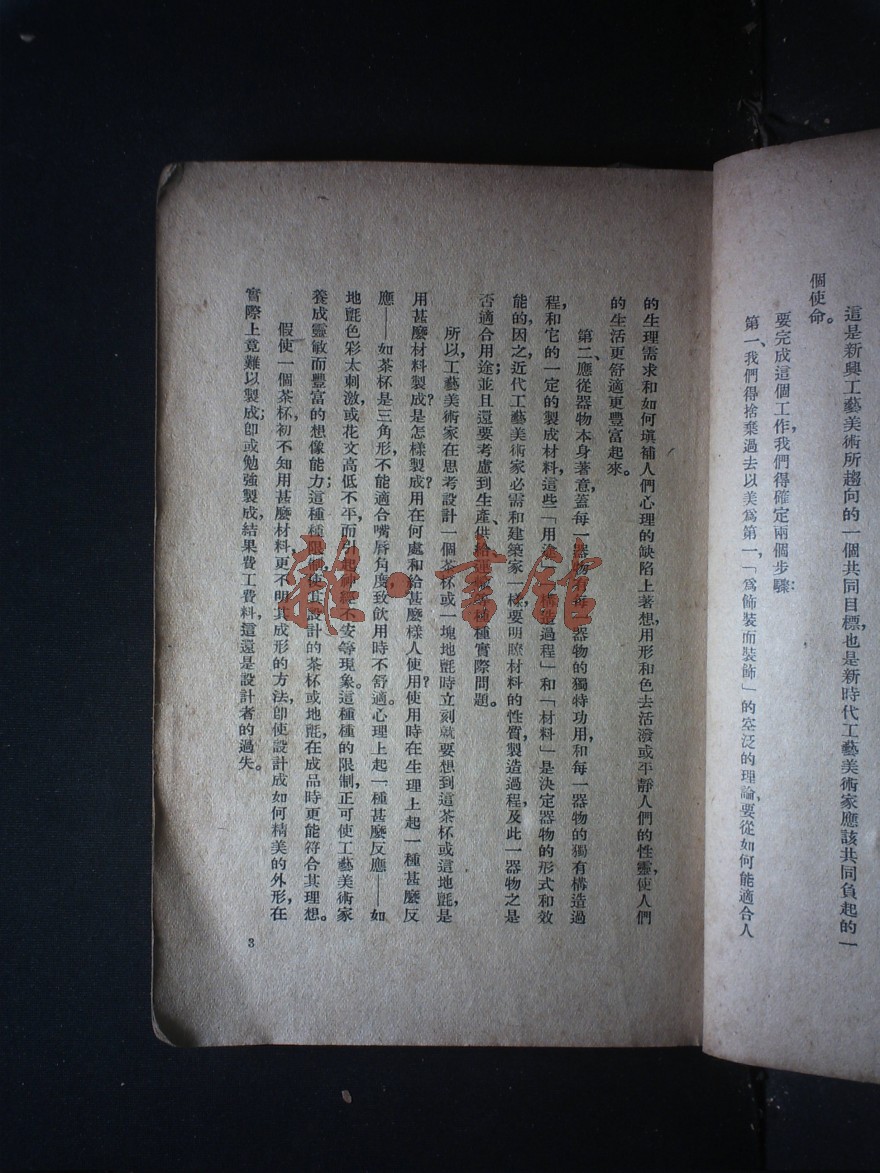 這是新興工藝美術所趨向的一個共同目標,也是新時代工藝美術家應該共同負起的一
個使命。
要完成這個工作,我們得確定兩個步驟:
第一、我們得捨棄過去以美爲第一,「爲飾裝而裝飾」的空泛的理論,要從如何能適合人
的生理需求和如何填補人們心理的缺陷上著想,用形和色去活潑或平靜人們的性靈,使人們
的生活更舒適更豐富起來。
第二、應從器物本身著意,蓋每一器物有每一器物的獨特功用,和每一器物的獨有構造過
程,和它的一定的製成材料,這些「用途」「構造過程」和「材料」是決定器物的形式和效
能的,因之,近代工藝美術家必需和建築家一樣,要明瞭材料的性質,製造過程,及此一器物之是
否適合用途;並且還要考慮到生產、供給、運輸等種種實際問題。
所以,工藝美術家在思考設計一個茶杯或一塊地氈時,立刻就要想到這茶杯或這地氈,是
用甚麼材料製成?是怎樣製成?用在何處和給甚麼樣人使用?使用時在生理上起一種甚麼反
應——如茶杯是三角形,不能適合嘴唇角度,致飲用時不舒適。心理上起一種甚麼反應——如
地氈色彩太刺激,或花文高低不平,而引起神經不安等現象。這種種的限制,正可使工藝美術家
養成靈敏而豐富的想像能力;這種種限制,使其設計的茶杯或地氈,在成品時更能符合其理想。
假使一個茶杯,初不知用甚麼材料,更不明其成形的方法,卽使設計成如何精美的外形,在
實際上竟難以製成;卽或勉強製成,結果費工費料,這還是設計者的過失。
3
雜·書館